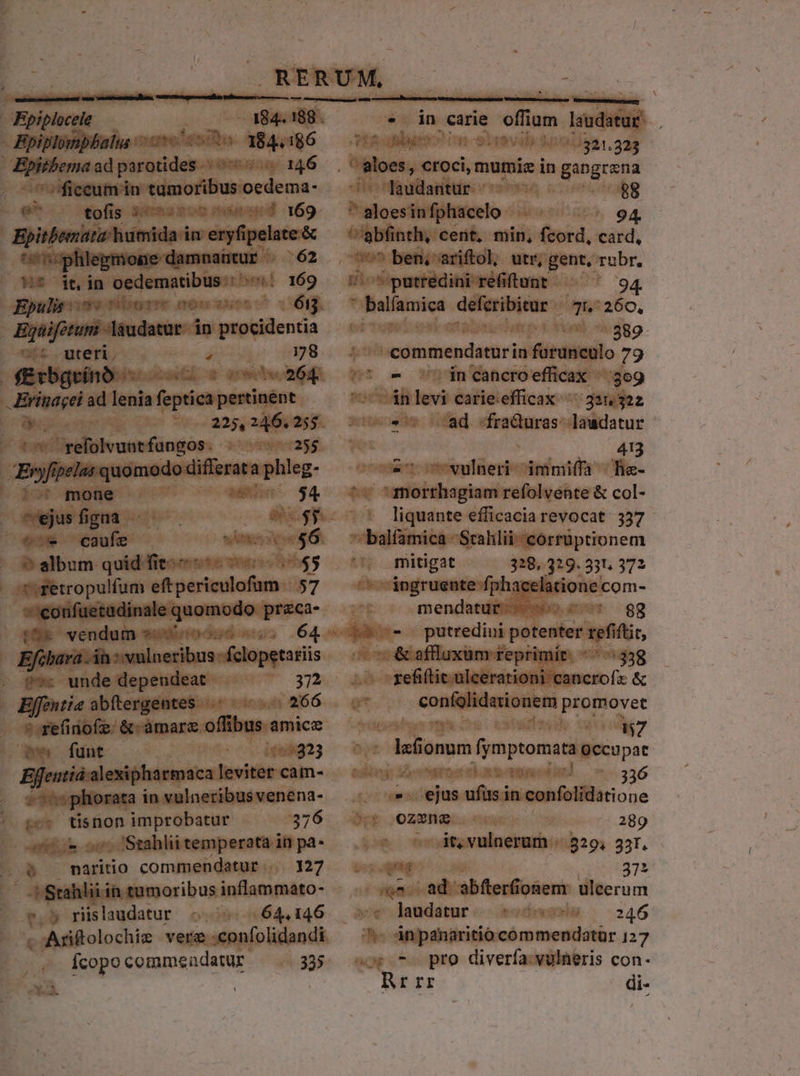 RERUM,
Epiplocele 184. 188.
Epiplomphalus 184. 186
Epithema ad parotides 146
ficcum in tumoribus oedema-
tofis 169
Epithemata humida in eryfipelate &
phlegmone damnantur 62
it. in oedematibus 169
Epulis 613.
Equifetum laudatur in procidentia
uteri 178
Erbgrind 264.
Erinacei ad lenia feptica pertinent
225, 246. 255.
refolvunt fungos. 255
Eryfipelas quomodo differat a phleg-
mone 54
ejus figna 55
- caufæ 56.
album quid fit 55
retropulfum eft periculofum 57
confuetudinale quomodo præca-
vendum 64
Efchara in vulneribus fclopetariis
unde dependeat 372
Effentiæ abftergentes 266
refinofæ & amaræ offibus amicæ
funt 323
Effentiá alexipharmaca leviter cam-
phorata in vulneribus venena-
tis non improbatur 376
- Stahlii temperata in pa-
naritio commendatur 127
Stahlii in tumoribus inflammato-
riis laudatur 64, 146
Ariftolochiæ veræ confolidandi
fcopo commendatur 335
- in carie offium laudatur
321. 323
aloes, croci, mumiæ in gangræna
laudantur 88
aloes in fphacelo 94
abfinth, cent. min, fcord, card,
ben, ariftol, utr, gent, rubr,
putredini refiftunt 94
balfamica defcribitur 71. 260,
389
commendatur in furunculo 79
- in cancro efficax 309
in levi carie efficax 321. 322
- ad fracturas laudatur
413
- vulneri immiffa hæ-
morrhagiam refolvente & col-
liquante efficacia revocat 337
balfamica Stahlii corruptionem
mitigat 328, 329. 331. 372
ingruente fphacelatione com-
mendatur 88
- putredini potenter refiftit,
& affluxum reprimit 338
refiftit ulcerationi cancrofæ &
confolidationem promovet
157
læfionum fymptomata occupat
336
- ejus ufus in confolidatione
ozænæ 289
it, vulnerum 329, 331,
372
- ad abfterfionem ulcerum
laudatur 246
in panaritio commendatur 127
- pro diverfa vulneris con-
Rr rr
di-